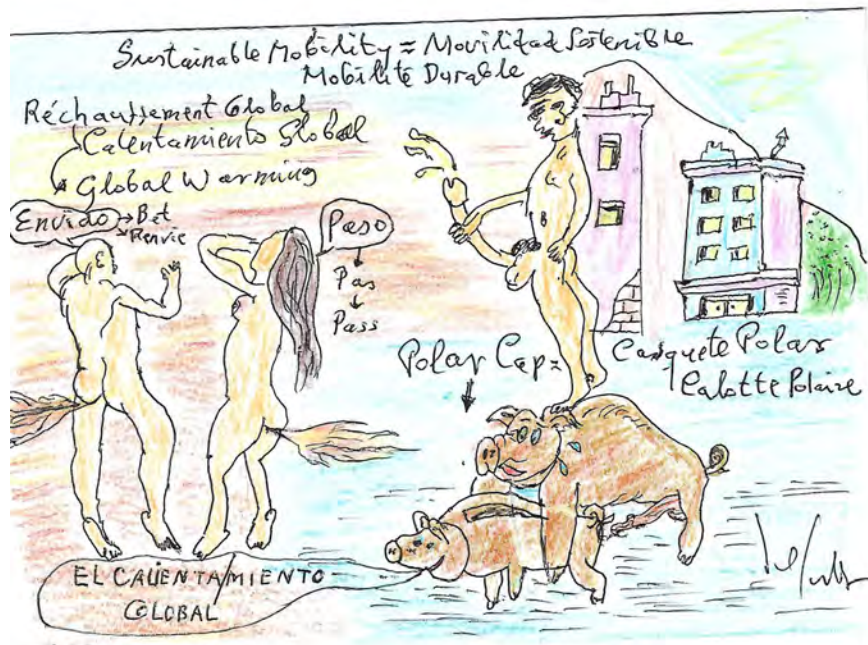 Sustainable Mobility = Movilidad Sostenible
Mobilité Durable
Réchauffement Global
Calentamiento Global
Global Warming
Envido → Bet
Renvie
Paso
Pas
Pass
Polar Cap = Casquete Polar
Calotte Polaire
EL CALIENTAMIENTO
GLOBAL